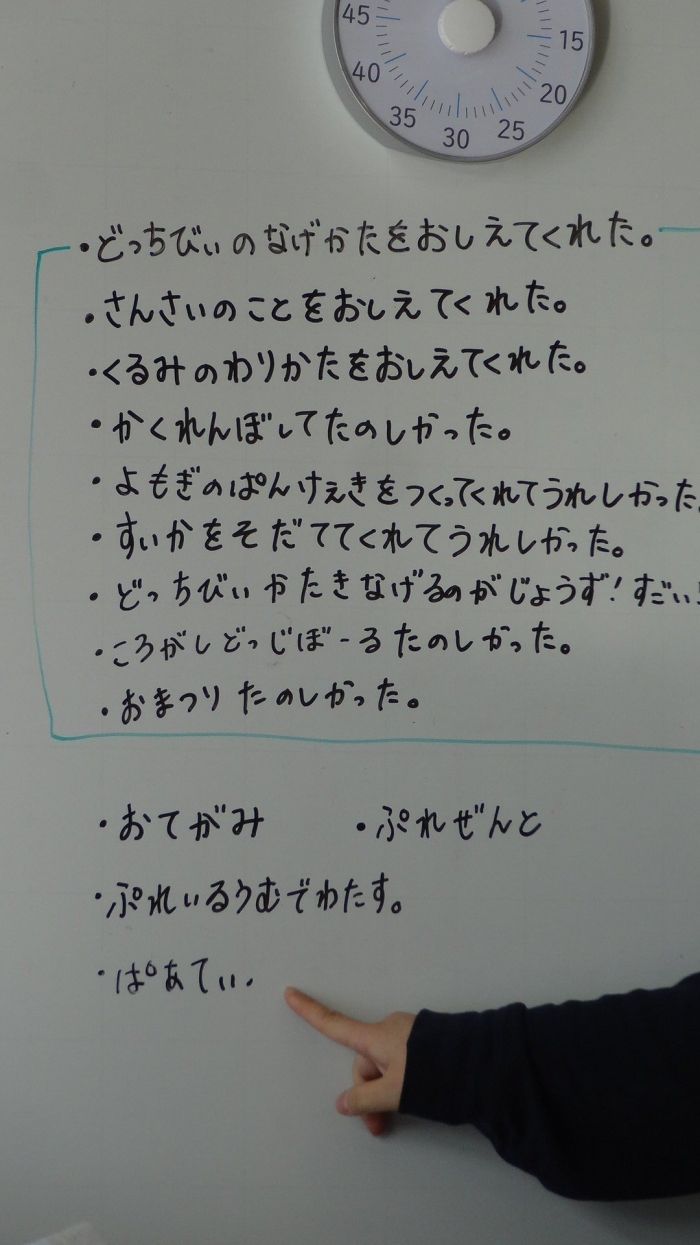 45
15
40
20
35
25
30
・どっちびぃのなげかたをおしえてくれた。
・さんさいのことをおしえてくれた。
・くるみのわりかたをおしえてくれた。
・かくれんぼしてたのしかった。
・よもぎのぱんけぇきをつくってくれてうれしかった
・すいかをそだててくれてうれしかった。
・どっちびぃかたきなげるのがじょうず!すごい!
・ころがしどっじぼーるたのしかった。
・おまつりたのしかった。
・おてがみ ・ぷれぜんと
・ぷれいるうむでわたす。
・ぱあてぃ.